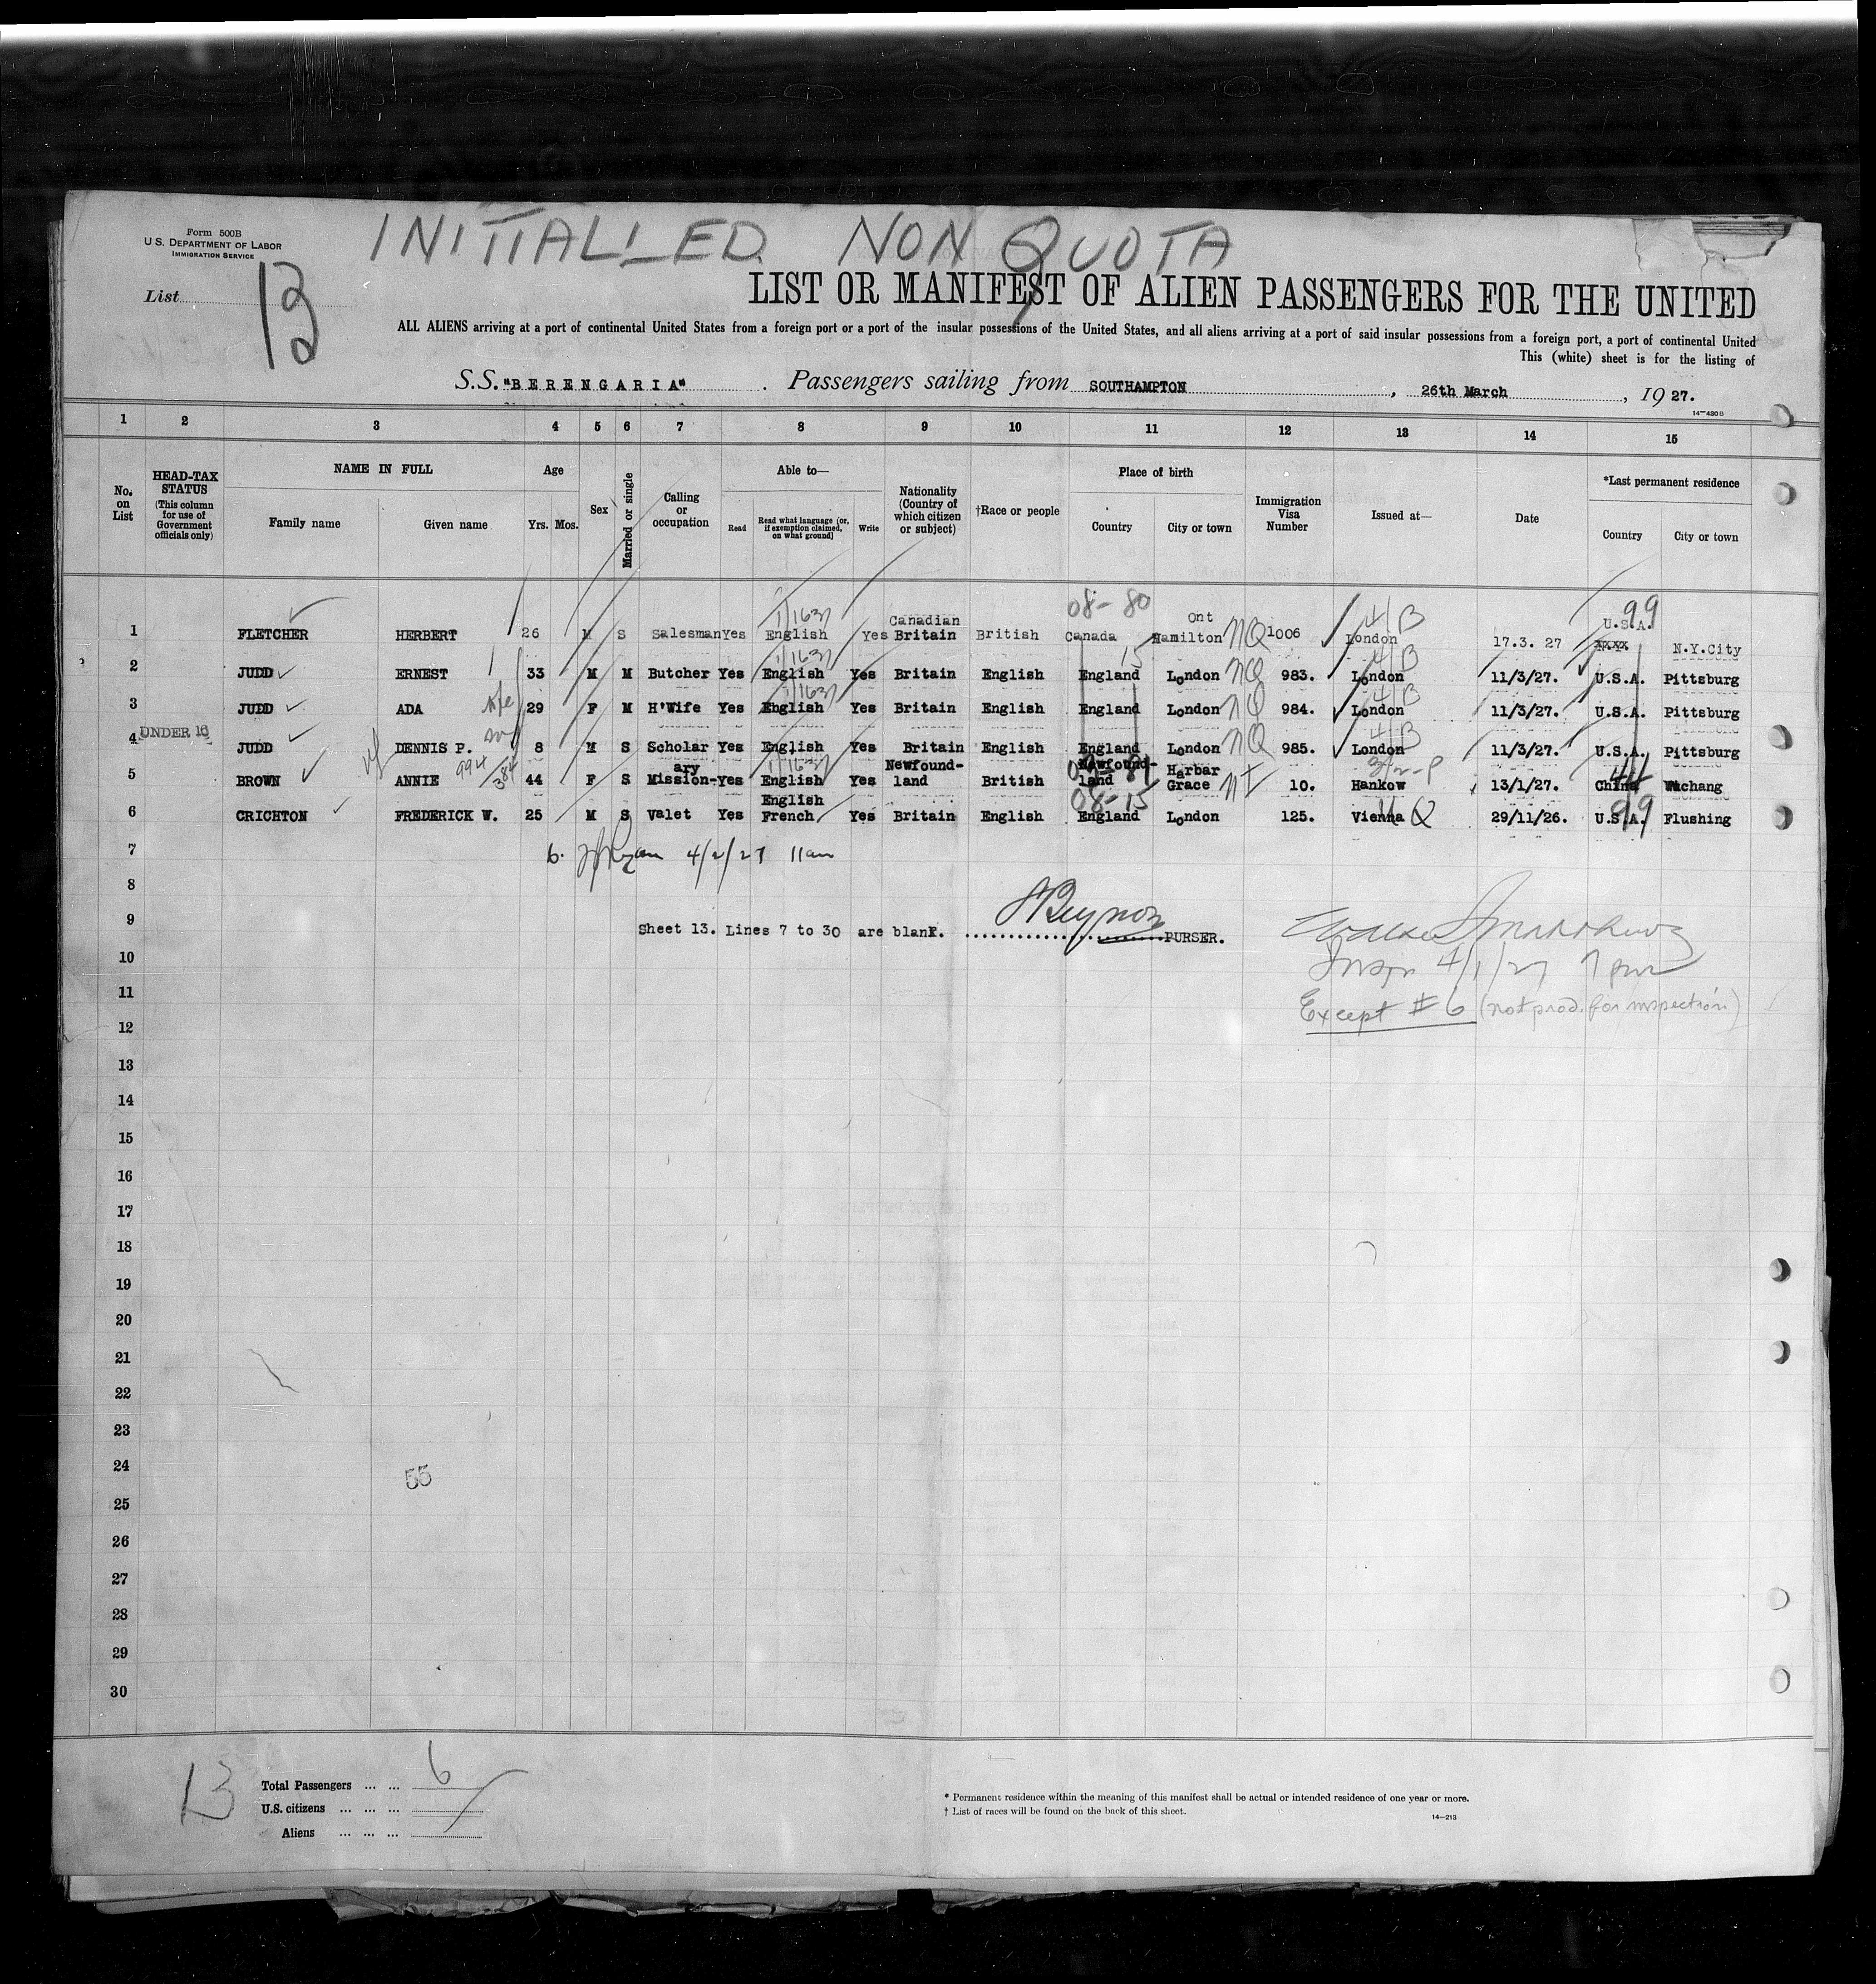 Form 500B
U.S. DEPARTMENT OF LABOR
IMMIGRATION SERVICE
INITIALLED NON QUOTA
List 13
LIST OR MANIFEST OF ALIEN PASSENGERS FOR THE UNITED
ALL ALIENS arriving at a port of continental United States from a foreign port or a port of the insular possessions of the United States, and all aliens arriving at a port of said insular possessions from a foreign port, a port of continental United
This (white) sheet is for the listing of
S.S. "BERENGARIA" . Passengers sailing from SOUTHAMPTON, 26th March, 1927.
14-430B
1 2 3 4 5 6 7 8 9 10 11 12 13 14 15
No. on List
HEAD-TAX STATUS (This column for use of Government officials only)
NAME IN FULL
Family name
Given name
Age
Yrs. Mos.
Sex
Married or single
Calling or occupation
Able to—
Read
Read what language (or, if exemption claimed, on what ground)
Write
Nationality (Country of which citizen or subject)
†Race or people
Place of birth
Country
City or town
Immigration Visa Number
Issued at—
Date
*Last permanent residence
Country
City or town
08-80 99
1/1637 4/B
1 FLETCHER HERBERT 26 M S Salesman Yes English Yes Canadian Britain British Canada Ont Hamilton NQ 1006 London 17.3. 27 U.S.A. N.Y.City
1/1637 15 4/B
2 JUDD ERNEST 33 M M Butcher Yes English Yes Britain English England London NQ 983. London 11/3/27. U.S.A. Pittsburg
1/1637 4/B
3 JUDD ADA 29 F M H'Wife Yes English Yes Britain English England London NQ 984. London 11/3/27. U.S.A. Pittsburg
4/B
4 UNDER 16 JUDD DENNIS P. 8 M S Scholar Yes English Yes Britain English England London NQ 985. London 11/3/27. U.S.A. Pittsburg
994 384 1/1637
5 BROWN ANNIE 44 F S Mission-ary Yes English Yes Newfound-land British Newfound-land Harbar Grace 10. Hankow 13/1/27. China Wuchang
08-15 99
6 CRICHTON FREDERICK W. 25 M S Valet Yes English French Yes Britain English England London 125. Vienna Q 29/11/26. U.S.A. Flushing
7
6. 4/2/27 11am
8
9
Sheet 13. Lines 7 to 30 are blank. PURSER.
10
4/1/27 7 pm
11
Except # 6 (not prod. for inspection)
12
13
14
15
16
17
18
19
20
21
22
23
24
55
25
26
27
28
29
30
13
Total Passengers ... ... 6
U.S. citizens ... ... ...
Aliens ... ... ...
* Permanent residence within the meaning of this manifest shall be actual or intended residence of one year or more.
† List of races will be found on the back of this sheet.
14-213